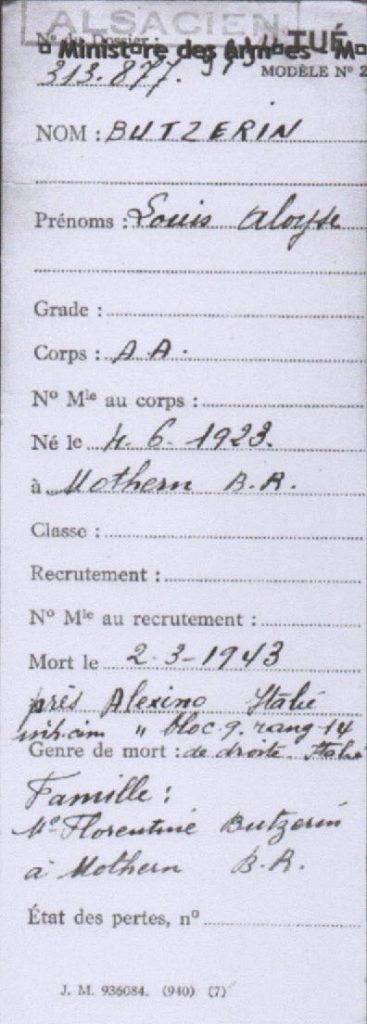 ALSACIEN
TUÉ
Ministère des Armées - M
N° du Dossier :
313.877.
MODÈLE N° 2
NOM : BUTZERIN
Prénoms : Louis Aloyse
Grade :
Corps : A A.
N° Mle au corps :
Né le 4. 6. 1923.
à Mothern B.R.
Classe :
Recrutement :
N° Mle au recrutement :
Mort le 2-3-1943
près Alexino Italie
inh. cim " bloc. 9. rang 14
Genre de mort : de droite Italie
Famille :
Me Florentine Butzerin
à Mothern B.R.
État des pertes, n°
J. M. 936084. (940) (7)